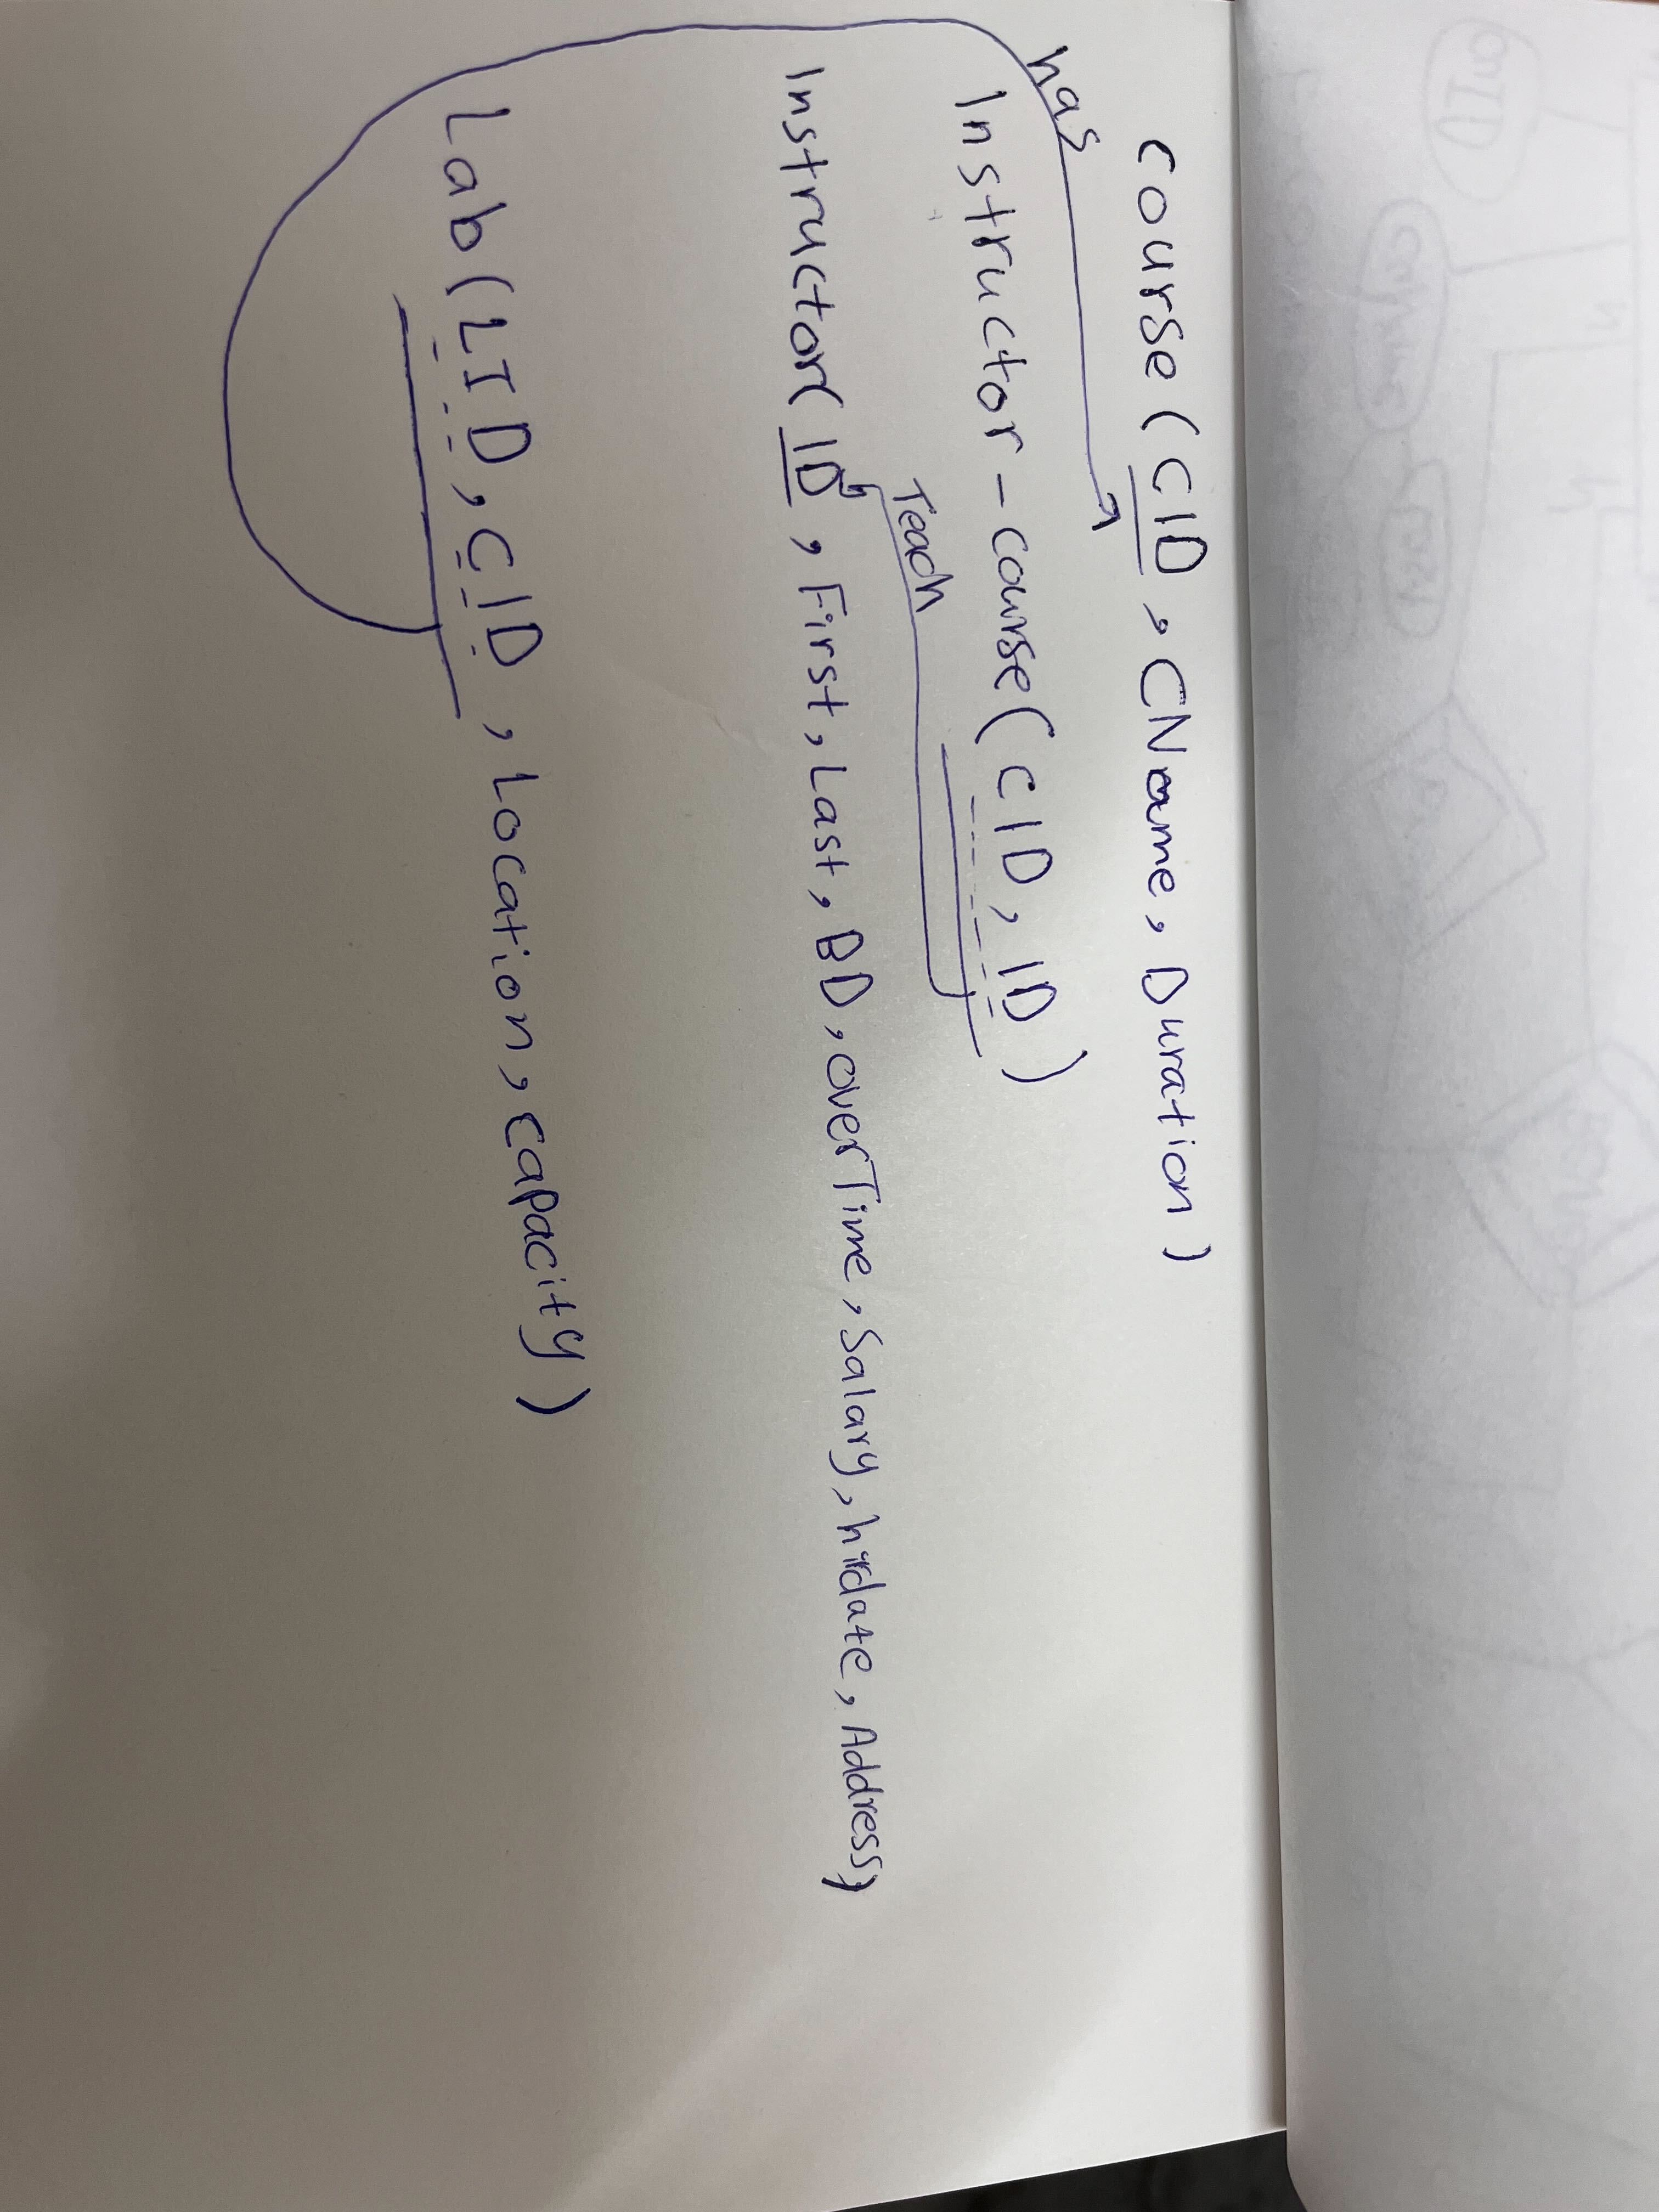 Course (CID, CName, Duration)
has
Instructor-course (CID, ID)
Teach
Instructor (ID, First, Last, BD, overTime, Salary, hirdate, Address)
Lab (LID, CID, Location, capacity)